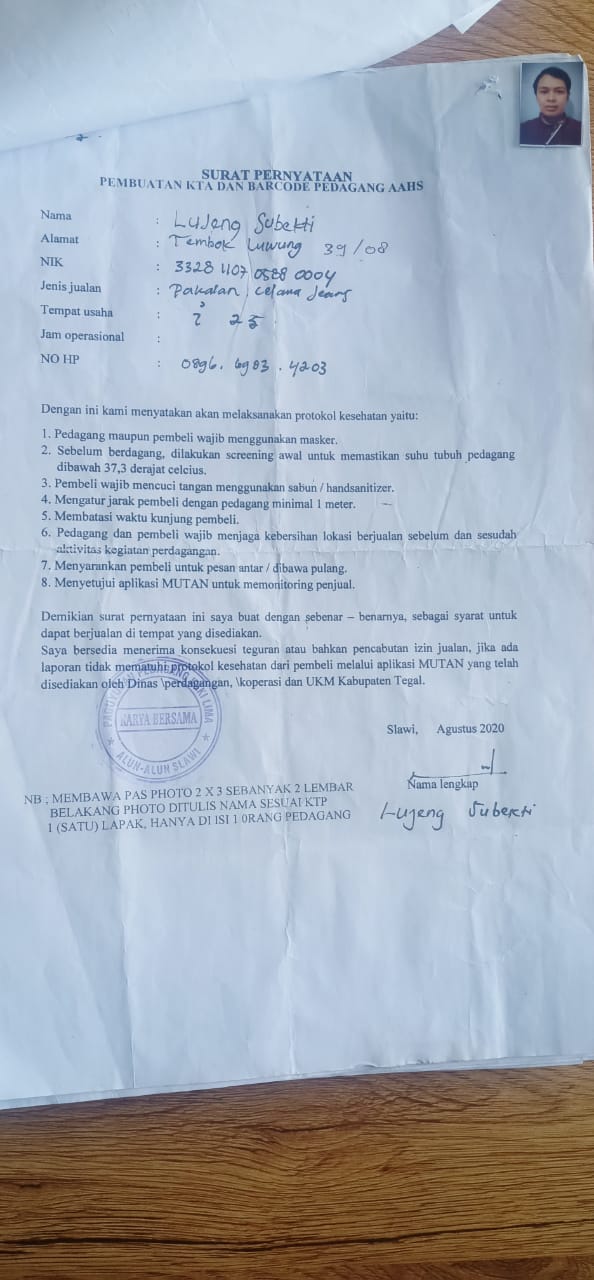 SURAT PERNYATAAN
PEMBUATAN KTA DAN BARCODE PEDAGANG AAHS
Nama : Lujeng Subekti
Alamat : Tembok Luwung 39/08
NIK : 3328 1107 0588 0004
Jenis jualan : Pakaian, celana Jeans
Tempat usaha : 25
Jam operasional :
NO HP : 0896. 6983 . 4203
Dengan ini kami menyatakan akan melaksanakan protokol kesehatan yaitu:
1. Pedagang maupun pembeli wajib menggunakan masker.
2. Sebelum berdagang, dilakukan screening awal untuk memastikan suhu tubuh pedagang
dibawah 37,3 derajat celcius.
3. Pembeli wajib mencuci tangan menggunakan sabun / handsanitizer.
4. Mengatur jarak pembeli dengan pedagang minimal 1 meter.
5. Membatasi waktu kunjung pembeli.
6. Pedagang dan pembeli wajib menjaga kebersihan lokasi berjualan sebelum dan sesudah
aktivitas kegiatan perdagangan.
7. Menyarankan pembeli untuk pesan antar / dibawa pulang.
8. Menyetujui aplikasi MUTAN untuk memonitoring penjual.
Demikian surat pernyataan ini saya buat dengan sebenar – benarnya, sebagai syarat untuk
dapat berjualan di tempat yang disediakan.
Saya bersedia menerima konsekuesi teguran atau bahkan pencabutan izin jualan, jika ada
laporan tidak mematuhi protokol kesehatan dari pembeli melalui aplikasi MUTAN yang telah
disediakan oleh Dinas \perdagangan, \koperasi dan UKM Kabupaten Tegal.
PEDAGANG KAKI LIMA
KARYA BERSAMA
ALUN-ALUN SLAWI
Slawi, Agustus 2020
Nama lengkap
Lujeng Subekti
NB ; MEMBAWA PAS PHOTO 2 X 3 SEBANYAK 2 LEMBAR
BELAKANG PHOTO DITULIS NAMA SESUAI KTP
1 (SATU) LAPAK, HANYA DI ISI 1 0RANG PEDAGANG